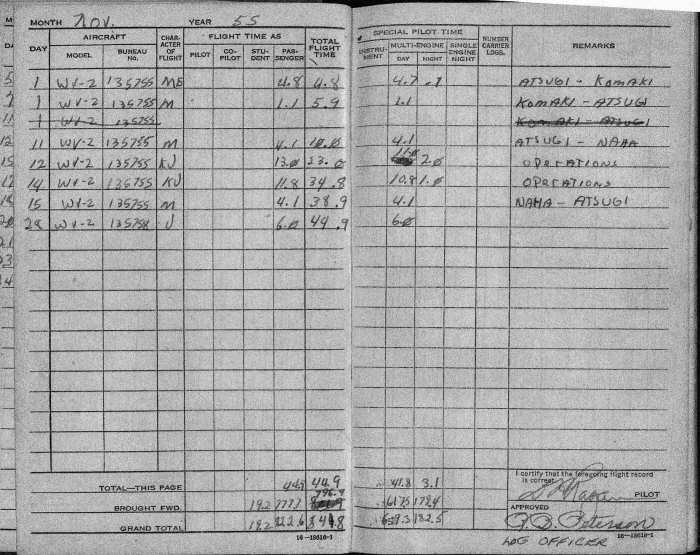 MONTH Nov. YEAR 55
DAY AIRCRAFT MODEL BUREAU NO. CHARACTER OF FLIGHT FLIGHT TIME AS PILOT CO-PILOT STUDENT PASSENGER TOTAL FLIGHT TIME SPECIAL PILOT TIME INSTRUMENT MULTI-ENGINE DAY NIGHT SINGLE ENGINE NIGHT NUMBER CARRIER LDGS. REMARKS
1 WV-2 135755 ME 4.8 4.8 4.7 .1 ATSUGI - KOMAKI
1 WV-2 135755 M 1.1 5.9 1.1 KOMAKI - ATSUGI
1 WV-2 135755 KOMAKI - ATSUGI
11 WV-2 135755 M 4.1 10.0 4.1 ATSUGI - NAHA
12 WV-2 135755 KJ 13.0 23.0 11.0 2.0 OPERATIONS
14 WV-2 135755 KJ 11.8 34.8 10.8 1.0 OPERATIONS
15 WV-2 135755 M 4.1 38.9 4.1 NAHA - ATSUGI
28 WV-2 135758 J 6.0 44.9 6.0
TOTAL—THIS PAGE 44.9 44.9 41.8 3.1
BROUGHT FWD. 19.2 777.7 796.9
GRAND TOTAL 182.5
I certify that the foregoing flight record is correct.
PILOT
APPROVED
Peterson
LOG OFFICER
16—18610-1 16—18610-1